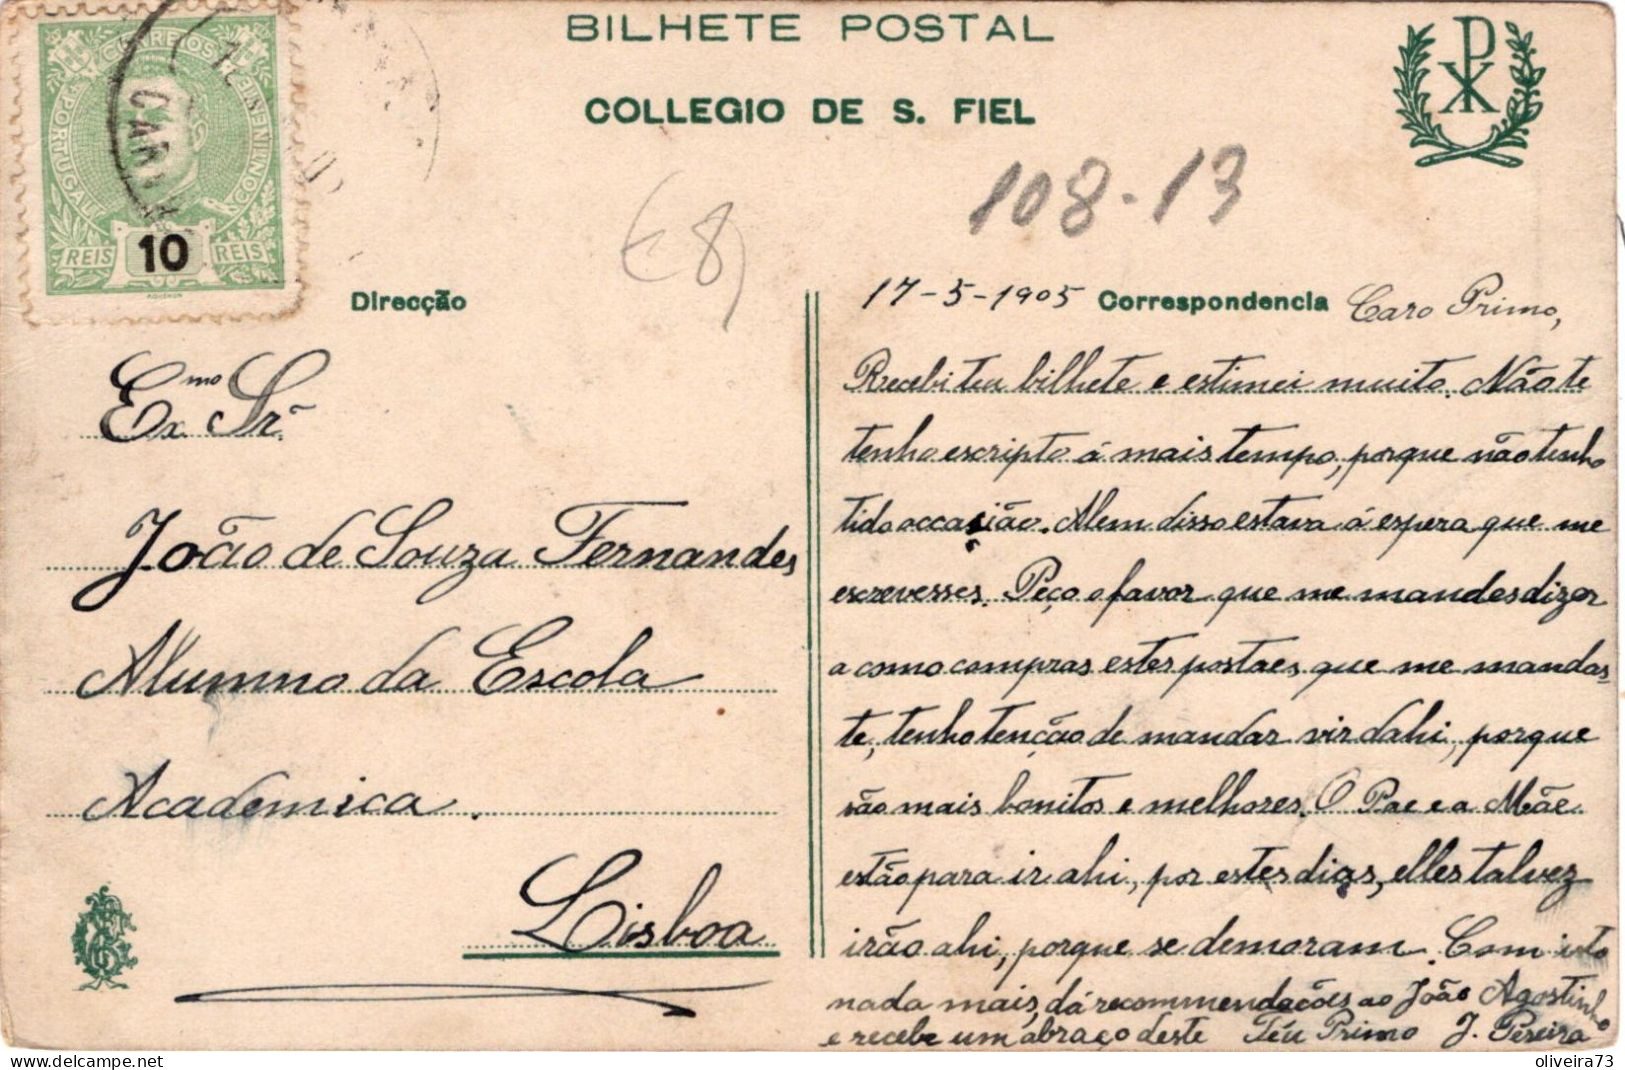 BILHETE POSTAL
COLLEGIO DE S. FIEL
CORREIOS
PORTUGAL
CONTINENTE
REIS 10 REIS
CAR
PX
108-13
€8
Direcção
Exmo Sr.
João de Souza Fernandes
Alumno da Escola
Academica.
Lisboa
17-5-1905 Correspondencia Caro Primo,
Rrecebi teu bilhete e estimei muito. Não te
tenho escripto á mais tempo, porque não tenho
tido occasião. Alem disso estava á espera que me
escrevesses. Peço o favor que me mandes dizer
a como compras estes postaes que me mandas-
te, tenho tenção de mandar vir dahi, porque
são mais bonitos e melhores. O Pae e a Mãe
estão para ir ahi, por estes dias, elles talvez
irão ahi, porque se demoram. Com isto
nada mais, dá recommendações ao João Agostinho
e recebe um abraço deste Teu Primo J. Pereira
oliveira73